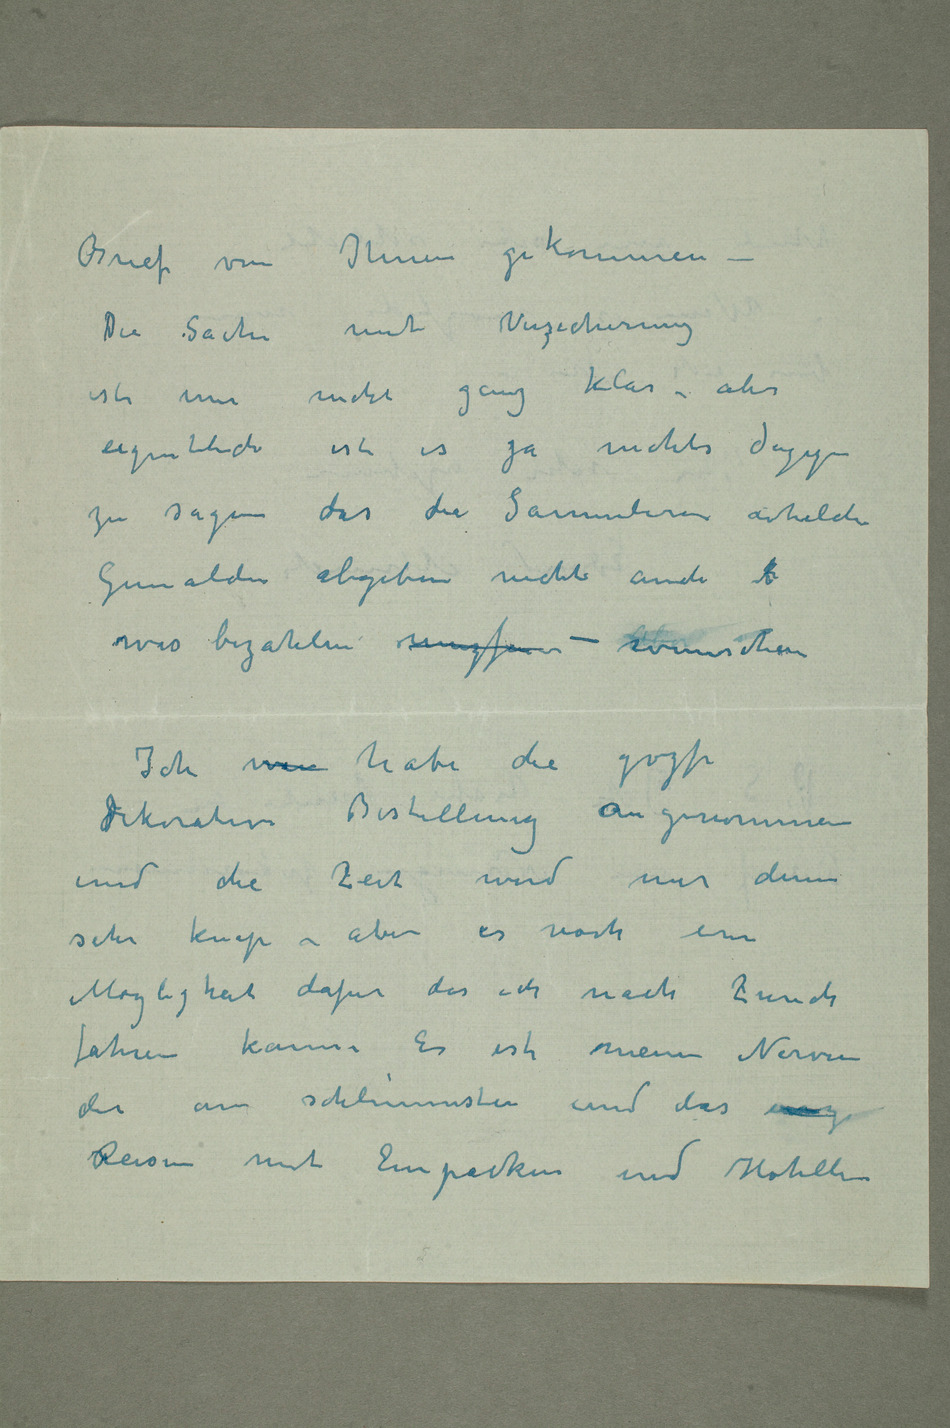 Brief von Ihnen gekommen –
Die Sache mit Verzicherung
ist mir nicht ganz klar – aber
eigentlich ist es ja nichts dagegen
zu sagen das die Sammleren
Gemälden abgeben nicht auch
was bezahlen – wünschen
Ich habe die grozse
Dekorative Bestellung angenommen
und die Zeit wird mir denn
sehr knap – aber es noch ein
Möglighkeit dafür das ich nach Zürich
fahren kann. Es ist meine Nerven
die am schlimmsten und das
Reisen mit Einpacken und Hotellen